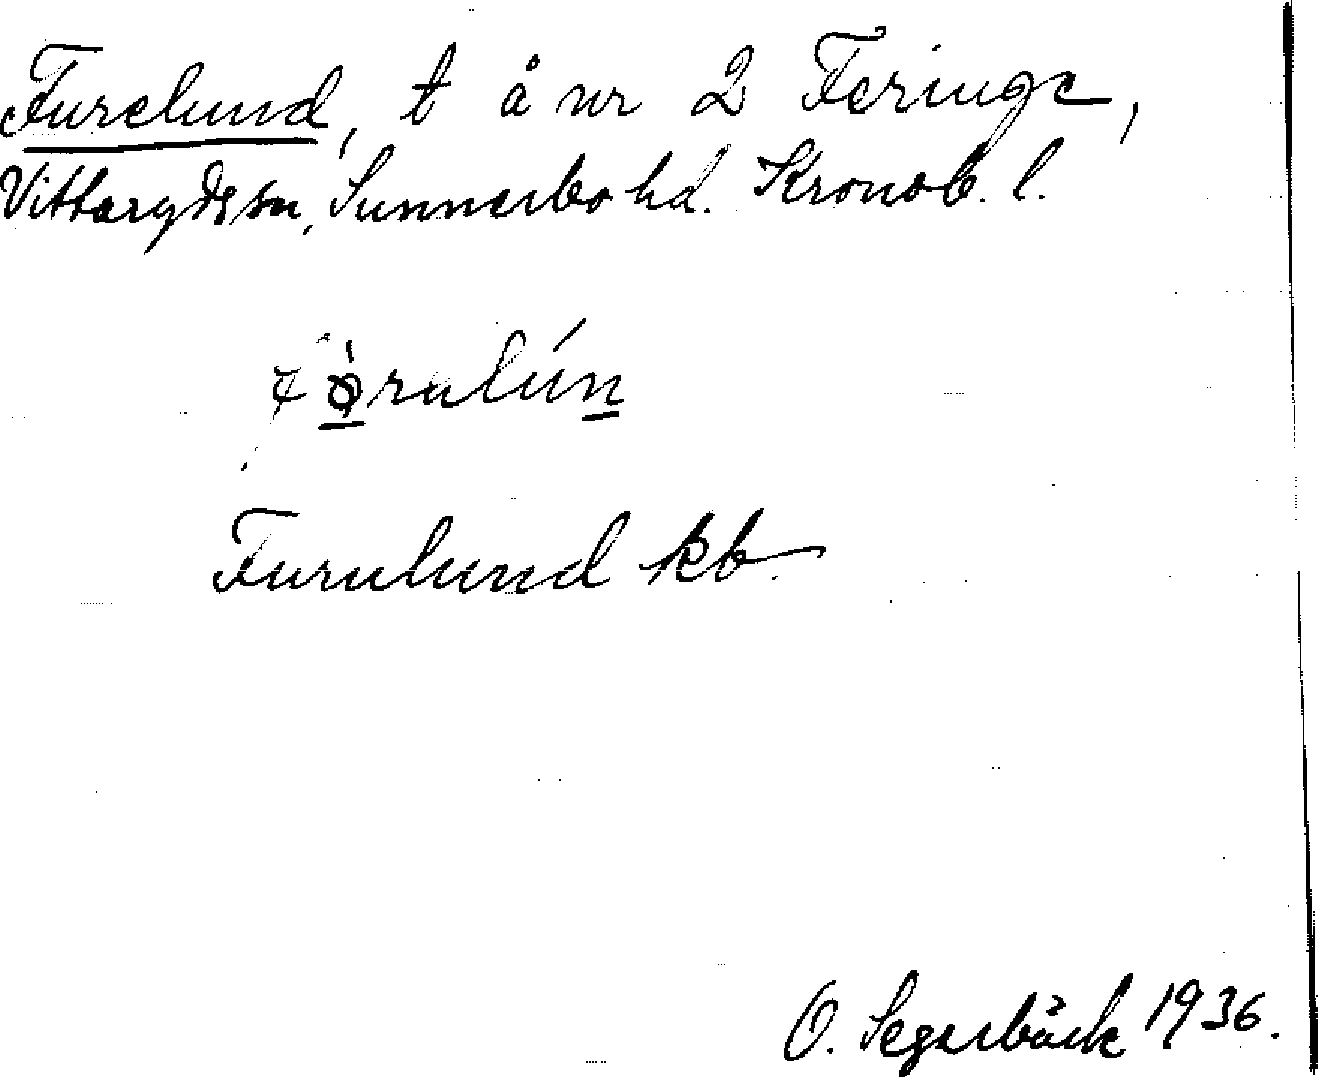 Furelund, t å nr 2 Feringe,
Vittaryds sn, Sunnerbo hd. Kronob. l.
Furulund kb.
O. Segerbäck 1936.